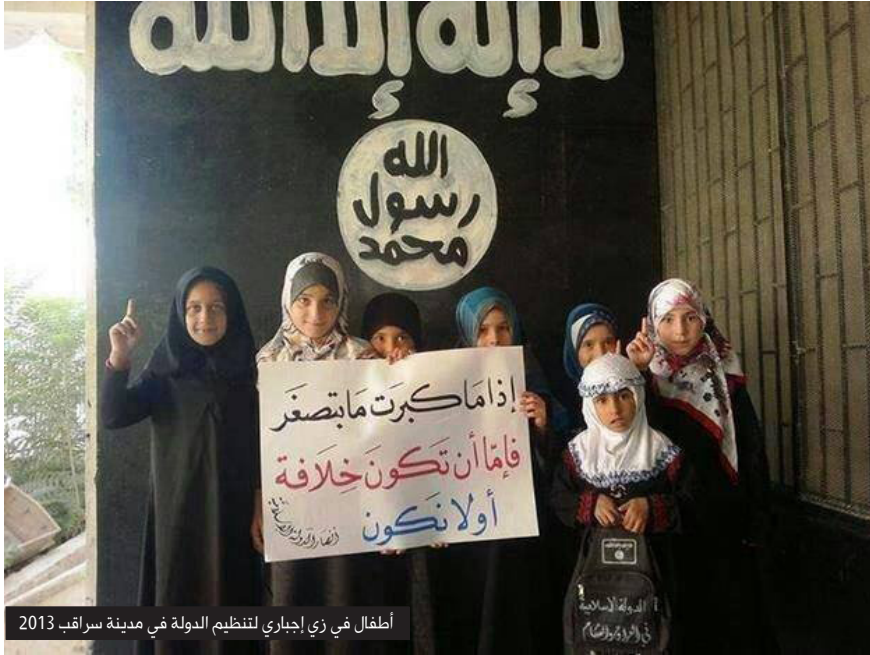 لا إله إلا الله
الله
رسول
محمد
إذا ما كبرت ما بتصغر
فإمّا أن تكون خلافة
أو لا نكون
أنصار الدولة الإسلامية
الدولة الاسلامية
في العراق والشام
أطفال في زي إجباري لتنظيم الدولة في مدينة سراقب 2013